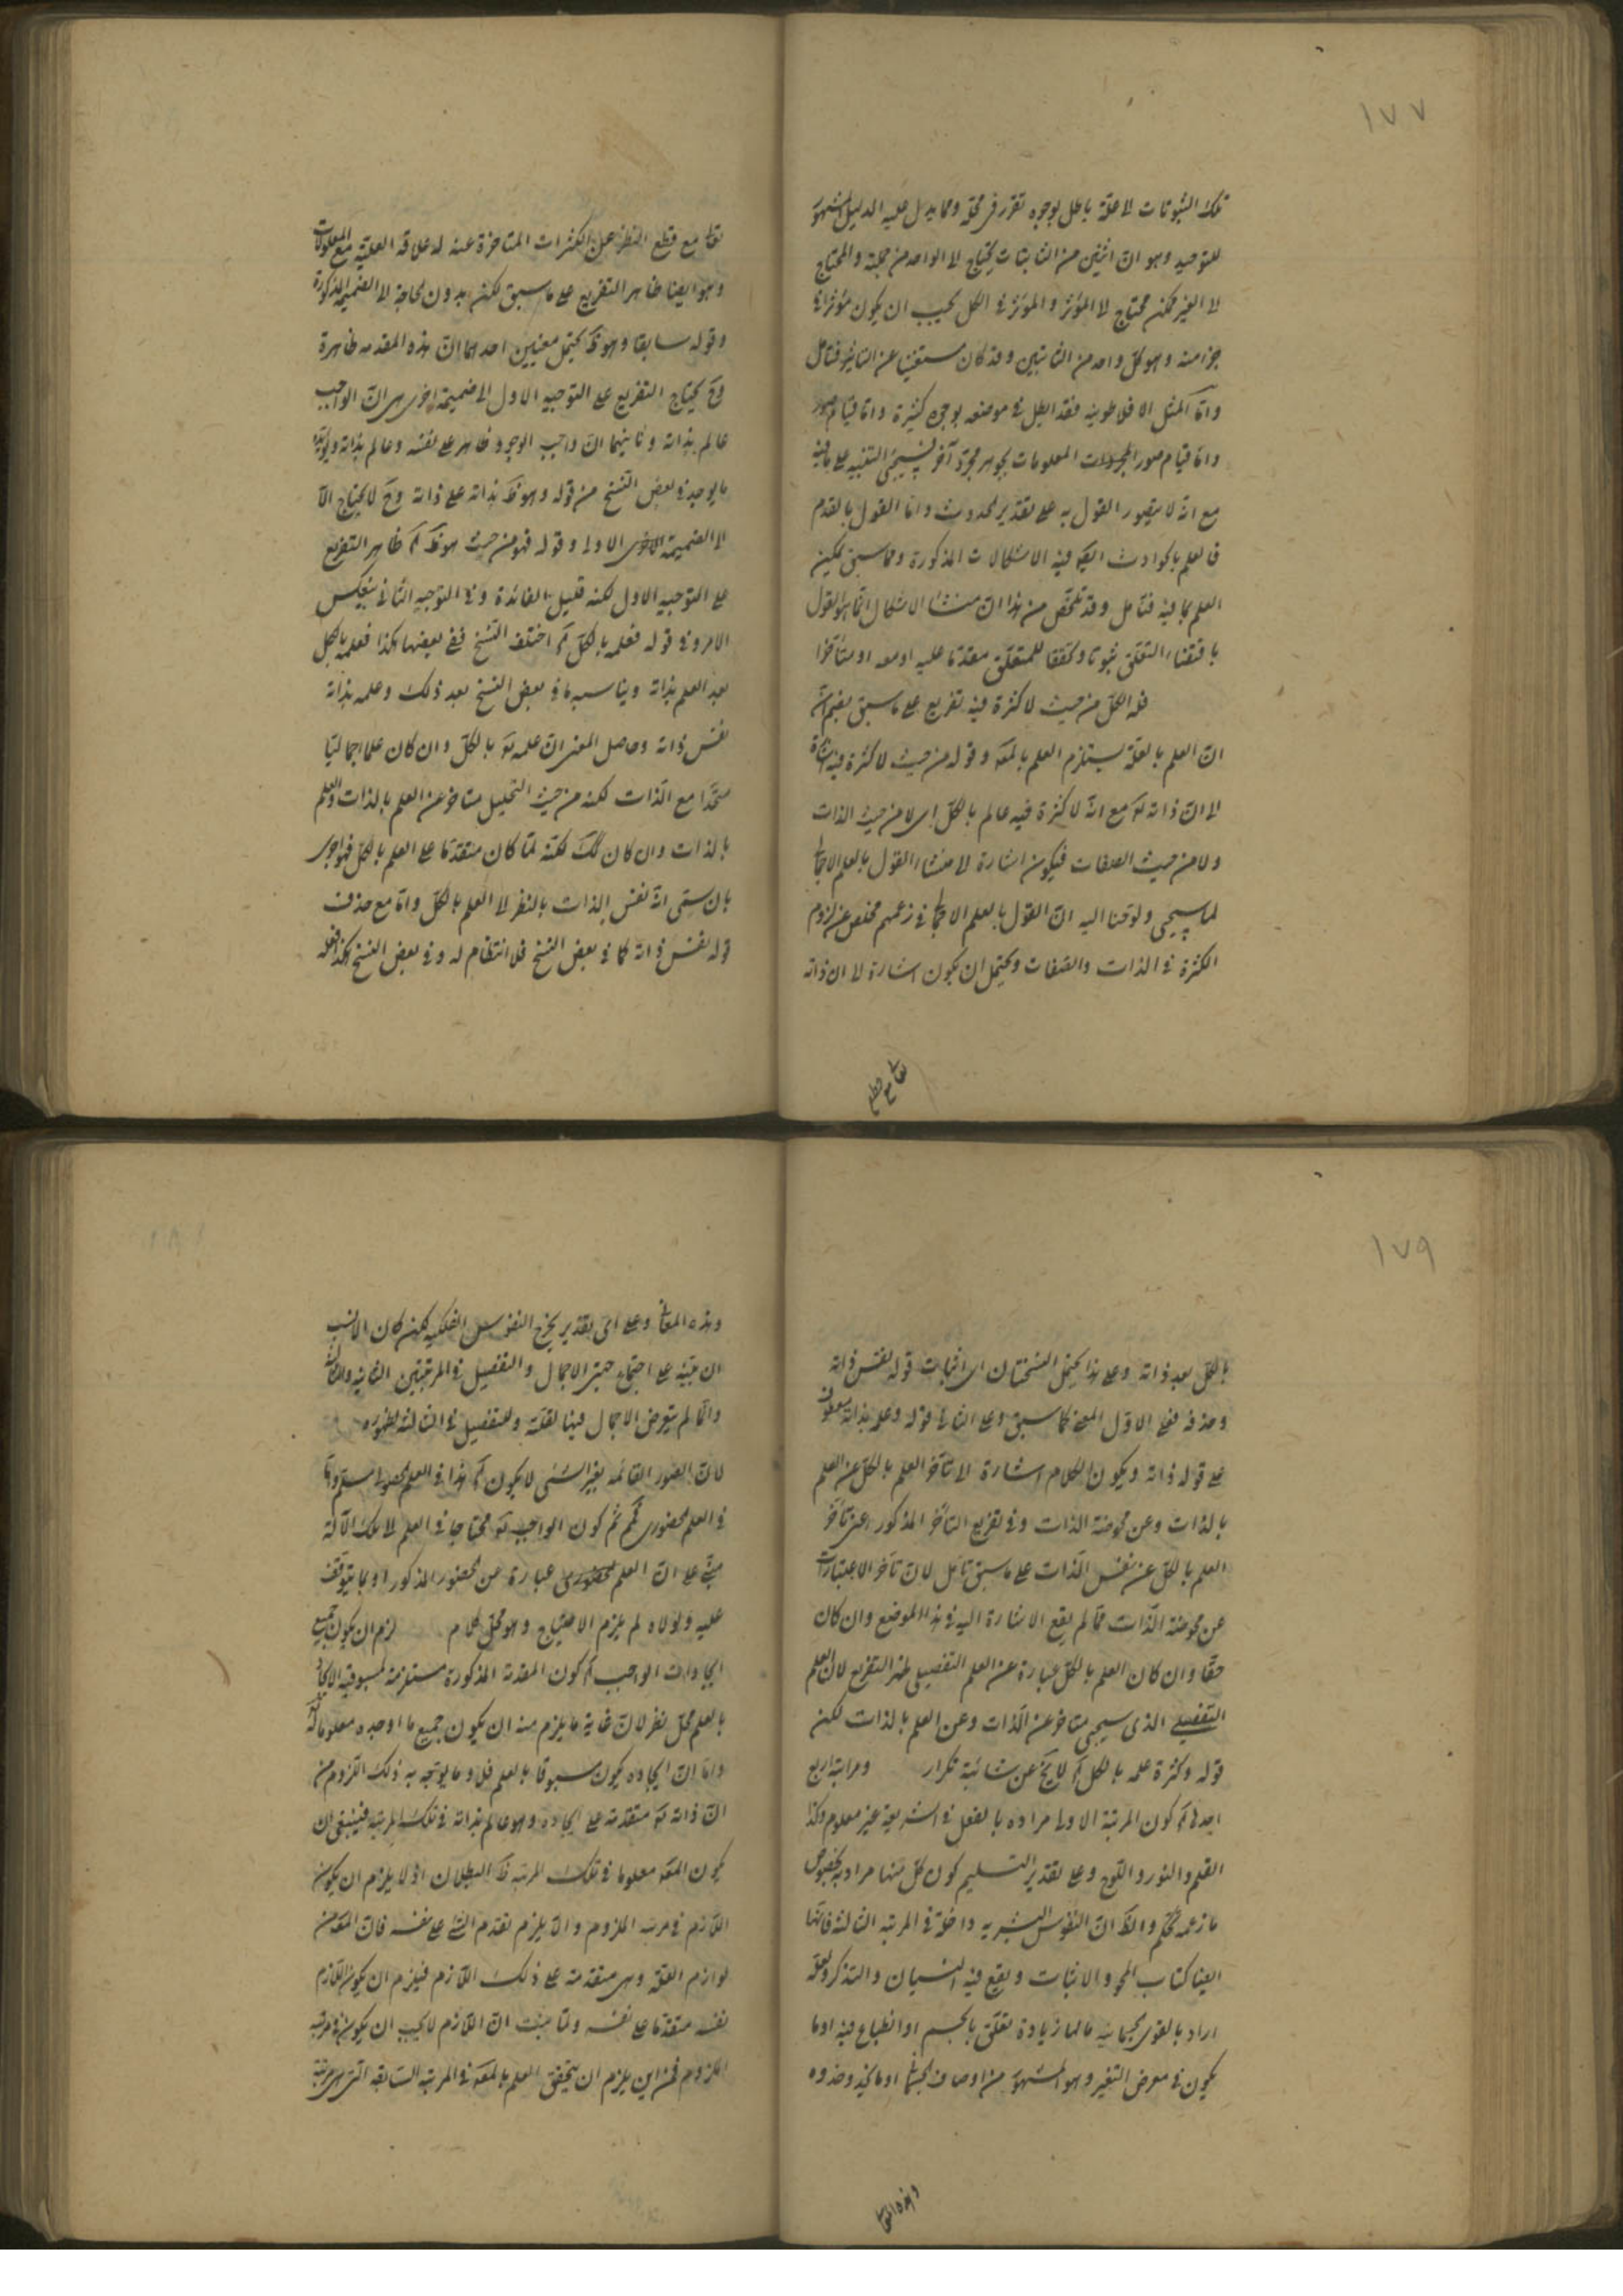 ١٧٧
تلك الثبوتات لا علة باطل بوجوه تقرر في محله ومما يدل عليه الدليل المشهور
للتوحيد وهو ان اثنين من الثابتات يحتاج الى الواحد من جملته والمحتاج
الى الغير ممكن محتاج الى المؤثر والمؤثر في الكل يجب ان يكون مؤثرا في
جزء منه وهو كل واحد من الثابتين وقد كان مستغنيا عن التاثير فتامل
واما المثل الافلاطونية فقد ابطل في موضعه بوجوه كثيرة واما قيام صور
واما قيام صور المعلومات بجوهر مجرد آخر فسيجئ التنبيه على ما فيه
مع انه لا يتصور القول به على تقدير الحدوث واما القول بالقدم
فالعلم بالحوادث ايضا فيه الاشكالات المذكورة ومما سبق يمكن
العلم بما فيه فتامل وقد تلخص من هذا ان منشأ الاشكال انما هو القول
باقتضاء التعلق ثبوتا وتحققا للمتعلق مقدما عليه او معه او متأخرا
فله الكل من حيث لا كثرة فيه تفريع على ما سبق بضم
ان العلم بالعلة يستلزم العلم بالمعلول وقوله من حيث لا كثرة فيه اشارة
الى ان ذاته تعالى مع انه لا كثرة فيه عالم بالكل اى لا من حيث الذات
ولا من حيث الصفات فيكون اشارة الى منشاء القول بالعلم الاجمالى
لما سيجئ ولوحنا اليه ان القول بالعلم الاجمالى في زعمهم مخلص عن لزوم
الكثرة في الذات والصفات ويحتمل ان يكون اشارة الى ان ذاته
تعالى مع قطع
تعالى مع قطع النظر عن الكثرات المتاخرة عنه له علاقة العلية مع المعلولات
وهو ايضا ظاهر التفريع على ما سبق لكن بدون الحاجة الى الضميمة المذكورة
وقوله سابقا وهو ظ يحتمل معنيين احدهما ان هذه المقدمه ظاهرة
وح يحتاج التفريع على التوجيه الاول الى ضميمة اخرى هى ان الواجب
عالم بذاته وثانيهما ان واجب الوجود ظاهر على نفسه وعالم بذاته ويؤيده
ما يوجد في بعض النسخ من قوله وهو ظ بذاته على ذاته وح لا يحتاج الا
الى الضميمة الاولى وقوله فهو من حيث هو ظ آه ظاهر التفريع
على التوجيه الاول لكنه قليل الفائدة وفي التوجيه الثانى ينعكس
الامر وفي قوله فعلمه بالكل آه اختلف النسخ ففي بعضها هكذا فعلمه بالكل
بعد العلم بذاته ويناسبه ما في بعض النسخ بعد ذلك وعلمه بذاته
نفس ذاته وحاصل المعنى ان علمه تعالى بالكل وان كان علما اجماليا
متحدا مع الذات لكنه من حيث التحليل متاخر عن العلم بالذات والعلم
بالذات وان كان كك لكنه لما كان متقدما على العلم بالكل فهو احرى
بان يسمى انه نفس الذات بالنظر الى العلم بالكل واما مع حذف
قوله نفس ذاته كما في بعض النسخ فلا انتظام له وفي بعض النسخ هكذا فعلمه
١٧٩
بالكل بعد ذاته وعلى هذا يحتمل النسختان اى اثبات قوله نفس ذاته
وحذفه فعلى الاول المعنى كما سبق وعلى الثانى قوله وعلمه بذاته معطوف
على قوله ذاته ويكون الكلام اشارة الى تاخر العلم بالكل عن العلم
بالذات وعن محوضة الذات وفي تفريع التأخر المذكور اعنى تاخر
العلم بالكل عن نفس الذات على ما سبق تامل لان تاخر الاعتبارات
عن محوضة الذات مما لم يقع الاشارة اليه في هذا الموضع وان كان
حقا وان كان العلم بالكل عبارة عن العلم التفصيلى ظهر التفريع لان العلم
التفصيلى الذى سيجئ متاخر عن الذات وعن العلم بالذات لكن
قوله وكثرة علمه بالكل آه لا يخ عن شائبة تكرار ومراتبه اربع
احدها آه كون المرتبة الاولى مراده بالفعل في الشريعة غير معلوم وكذا
القلم والنور واللوح وعلى تقدير التسليم كون كل منها مراد به بخصوص
ما زعمه تحكم والظ ان النفوس البشرية داخلة في المرتبه الثالثه فانها
ايضا كتاب المحو والاثبات ويقع فيه النسيان والتذكر ولعله
اراد بالقوى الجسمانيه ما لها زيادة تعلق بالجسم او انطباع فيه او ما
يكون في معرض التغير وهو المشهور من اوصاف الجسمانى او ما يحذو حذوه
وهذه المعانى
وهذه المعانى وعلى اى تقدير يخرج النفوس الفلكيه لكن كان الانسب
ان ينبه على اجتماع حيثى الاجمال والتفصيل في المرتبتين الثانيه والثالثة
وانما لم يتعرض الاجمال فيها لقلته وللتفصيل في الثالثة لظهوره
لان الصور القائمه بغير الشئ لا يكون آه هذا في العلم الحصولى مسلم واما
في العلم الحضورى تحكم ثم كون الواجب تعالى محتاجا في العلم الى تلك الآلة
مبنى على ان العلم الحضورى عبارة عن الحضور المذكور او مما يتوقف
عليه ولولاه لم يلزم الاحتياج وهو محل كلام لزم ان يكون جميع
ايجادات الواجب آه كون المقدمة المذكورة مستلزمة لمسبوقية الايجاد
بالعلم محل نظر لان غاية ما يلزم منه ان يكون جميع ما اوجده معلوما له
واما ان ايجاده يكون مسبوقا بالعلم فلا وما يوجه به ذلك اللزوم من
ان ذاته تعالى متقدمة على ايجاده وهو عالم بذاته في تلك المرتبة فينبغى ان
يكون المعلول معلوما في تلك المرتبه ظ البطلان اذ لا يلزم ان يكون
اللازم في مرتبه الملزوم والا يلزم تقدم الشئ على نفسه فان المعلول من
لوازم العلة وهى متقدمة على ذلك اللازم فيلزم ان يكون اللازم
نفسه متقدما على نفسه ولما ثبت ان اللازم لا يجب ان يكون في مرتبه
الملزوم فمن اين يلزم ان يتحقق العلم بالمعلول في المرتبه السابقه التى هى مرتبة